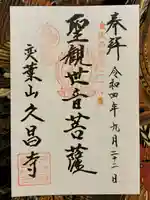 奉拜
令和四年九月二十二日
聖觀世音菩薩
葉山久昌寺